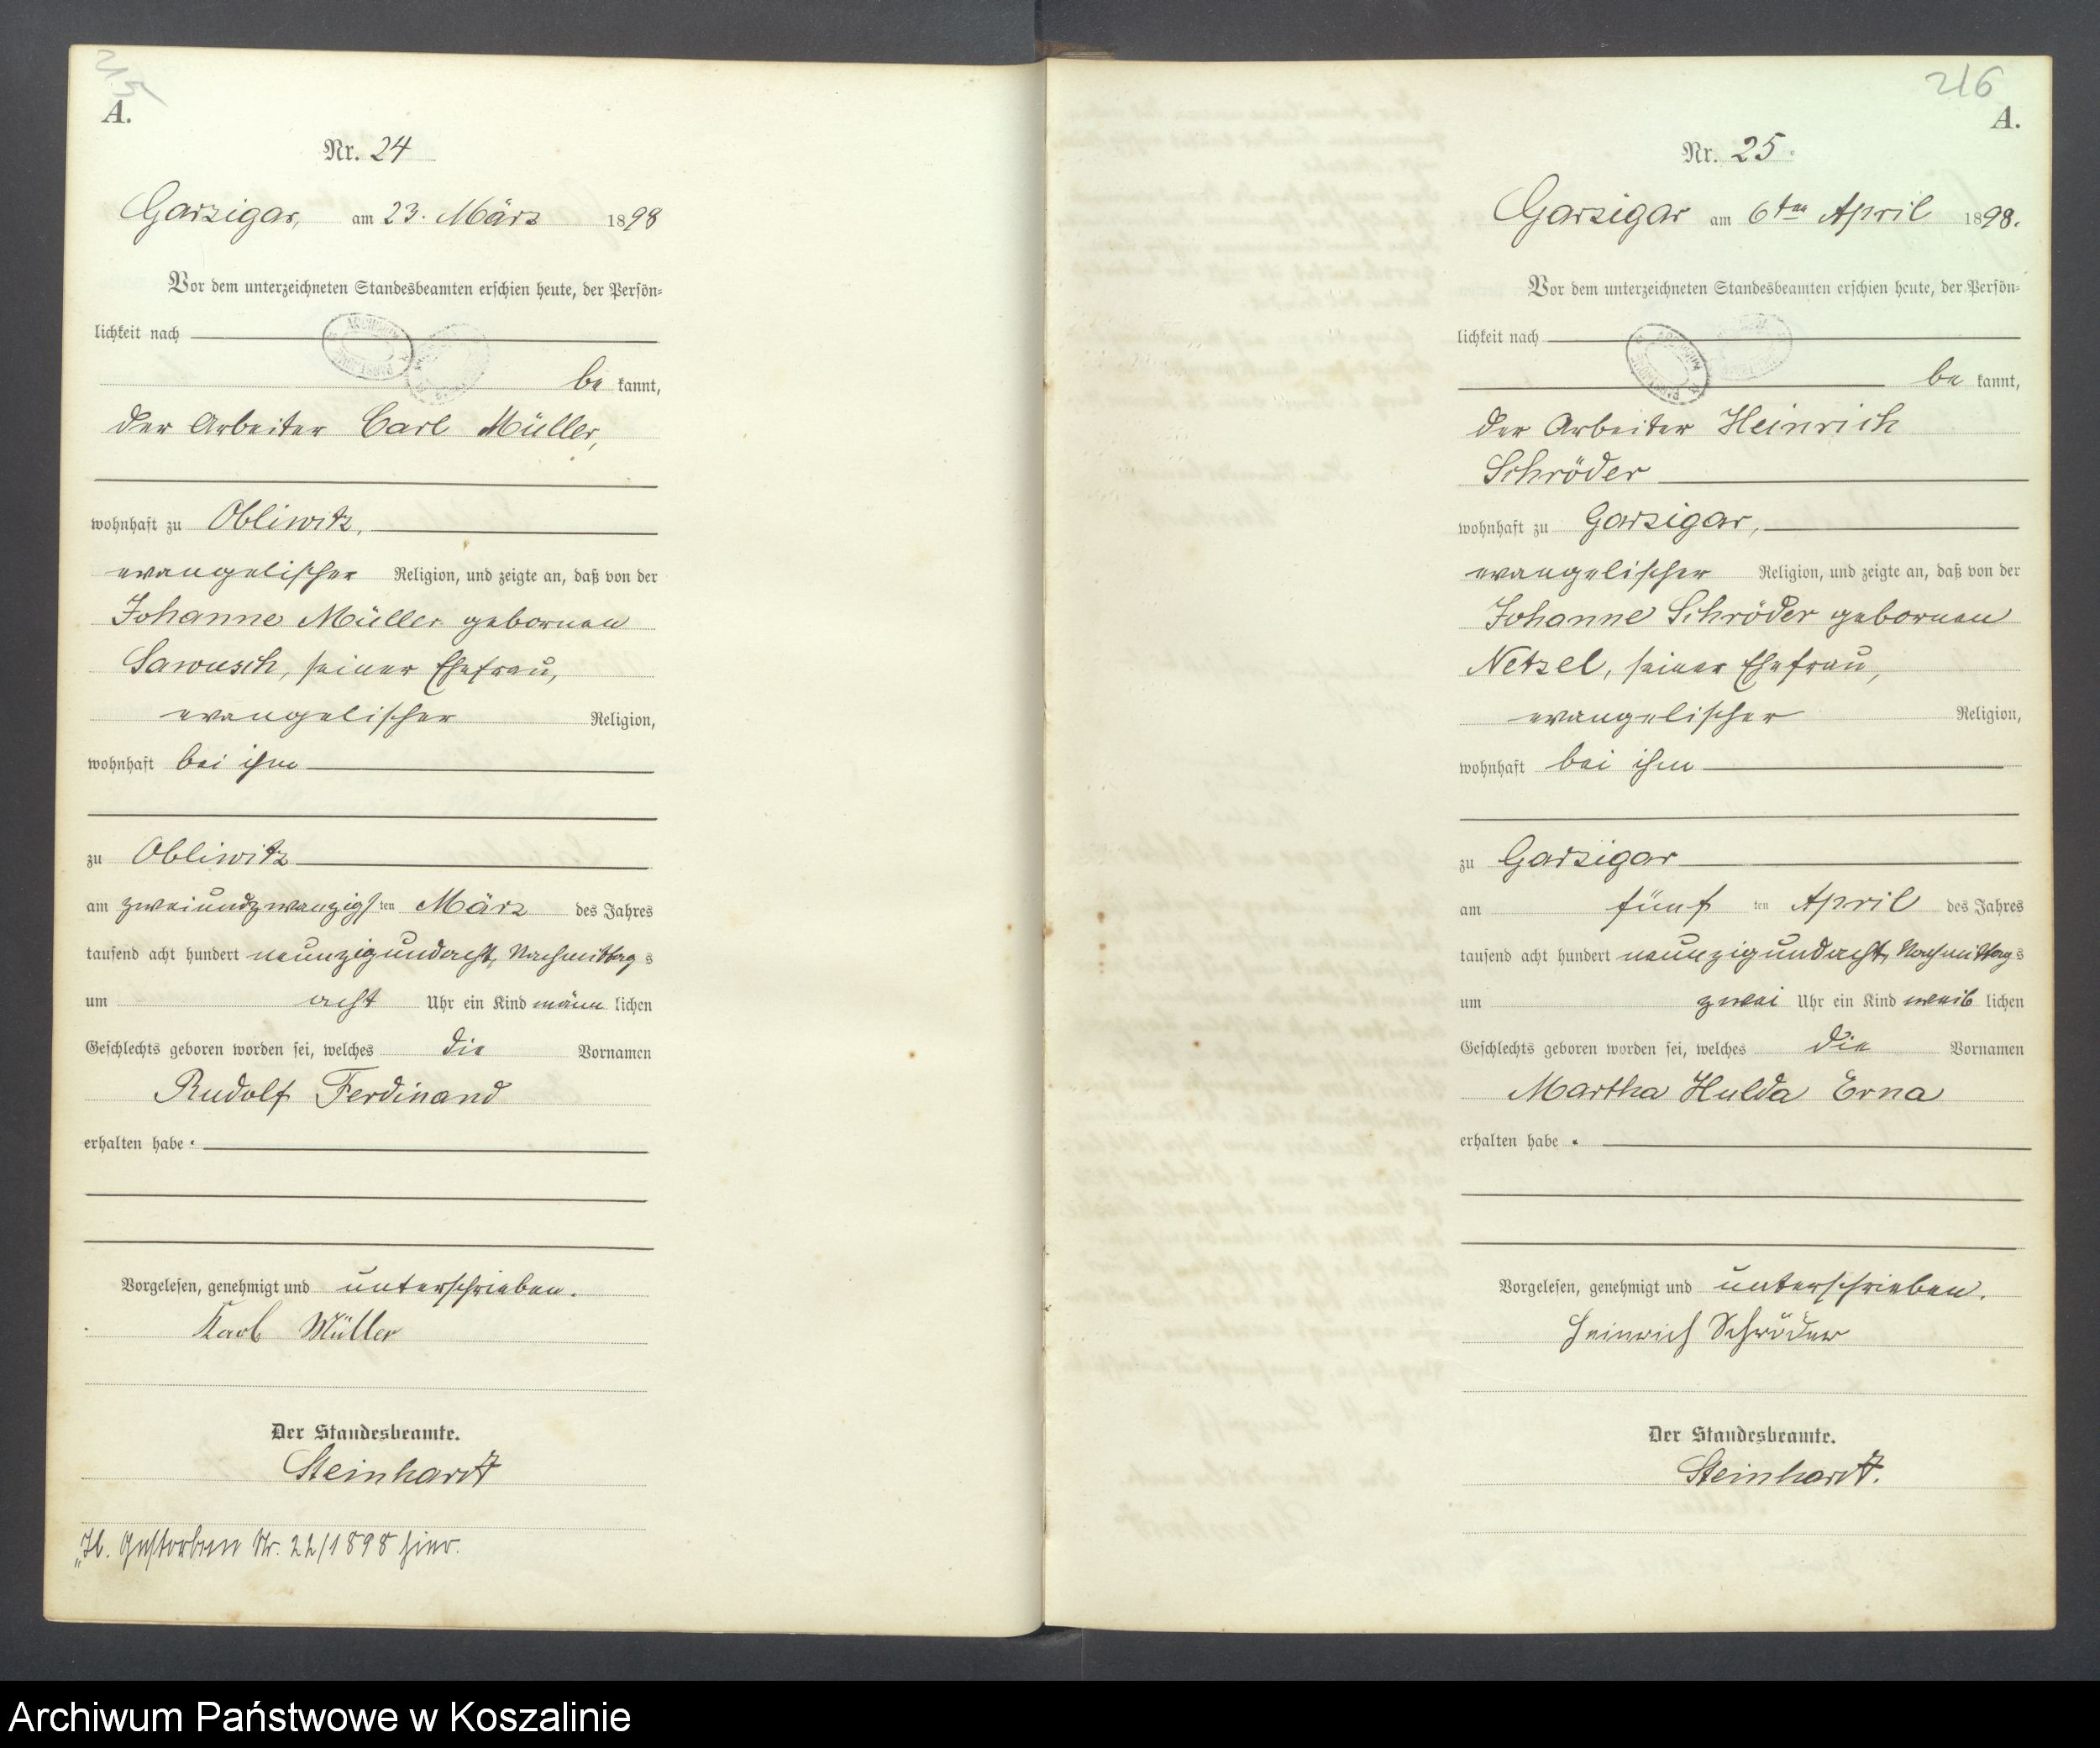 215
A.
Nr. 24
Garzigar, am 23. März 1898
Vor dem unterzeichneten Standesbeamten erschien heute, der Persön-
lichkeit nach
be kannt,
der Arbeiter Carl Müller,
wohnhaft zu Obliwitz,
evangelischer Religion, und zeigte an, daß von der
Johanne Müller gebornen
Sawusch, seiner Ehefrau,
evangelischer Religion,
wohnhaft bei ihm
zu Obliwitz
am zweiundzwanzigsten März des Jahres
tausend acht hundert neunzigundacht, Nachmittags
um acht Uhr ein Kind männlichen
Geschlechts geboren worden sei, welches die Vornamen
Rudolf Ferdinand
erhalten habe.
Vorgelesen, genehmigt und unterschrieben.
Karl Müller
Der Standesbeamte.
Steinhardt
Gestorben Nr. 22/1898 hier.
216
A.
Nr. 25.
Garzigar am 6ten April 1898.
Vor dem unterzeichneten Standesbeamten erschien heute, der Persön-
lichkeit nach
be kannt,
der Arbeiter Heinrich
Schröder
wohnhaft zu Garzigar,
evangelischer Religion, und zeigte an, daß von der
Johanne Schröder gebornen
Netzel, seiner Ehefrau,
evangelischer Religion,
wohnhaft bei ihm
zu Garzigar
am fünften April des Jahres
tausend acht hundert neunzigundacht, Nachmittags
um zwei Uhr ein Kind weiblichen
Geschlechts geboren worden sei, welches die Vornamen
Martha Hulda Erna
erhalten habe.
Vorgelesen, genehmigt und unterschrieben.
Heinrich Schröder
Der Standesbeamte.
Steinhardt.
Archiwum Państwowe w Koszalinie